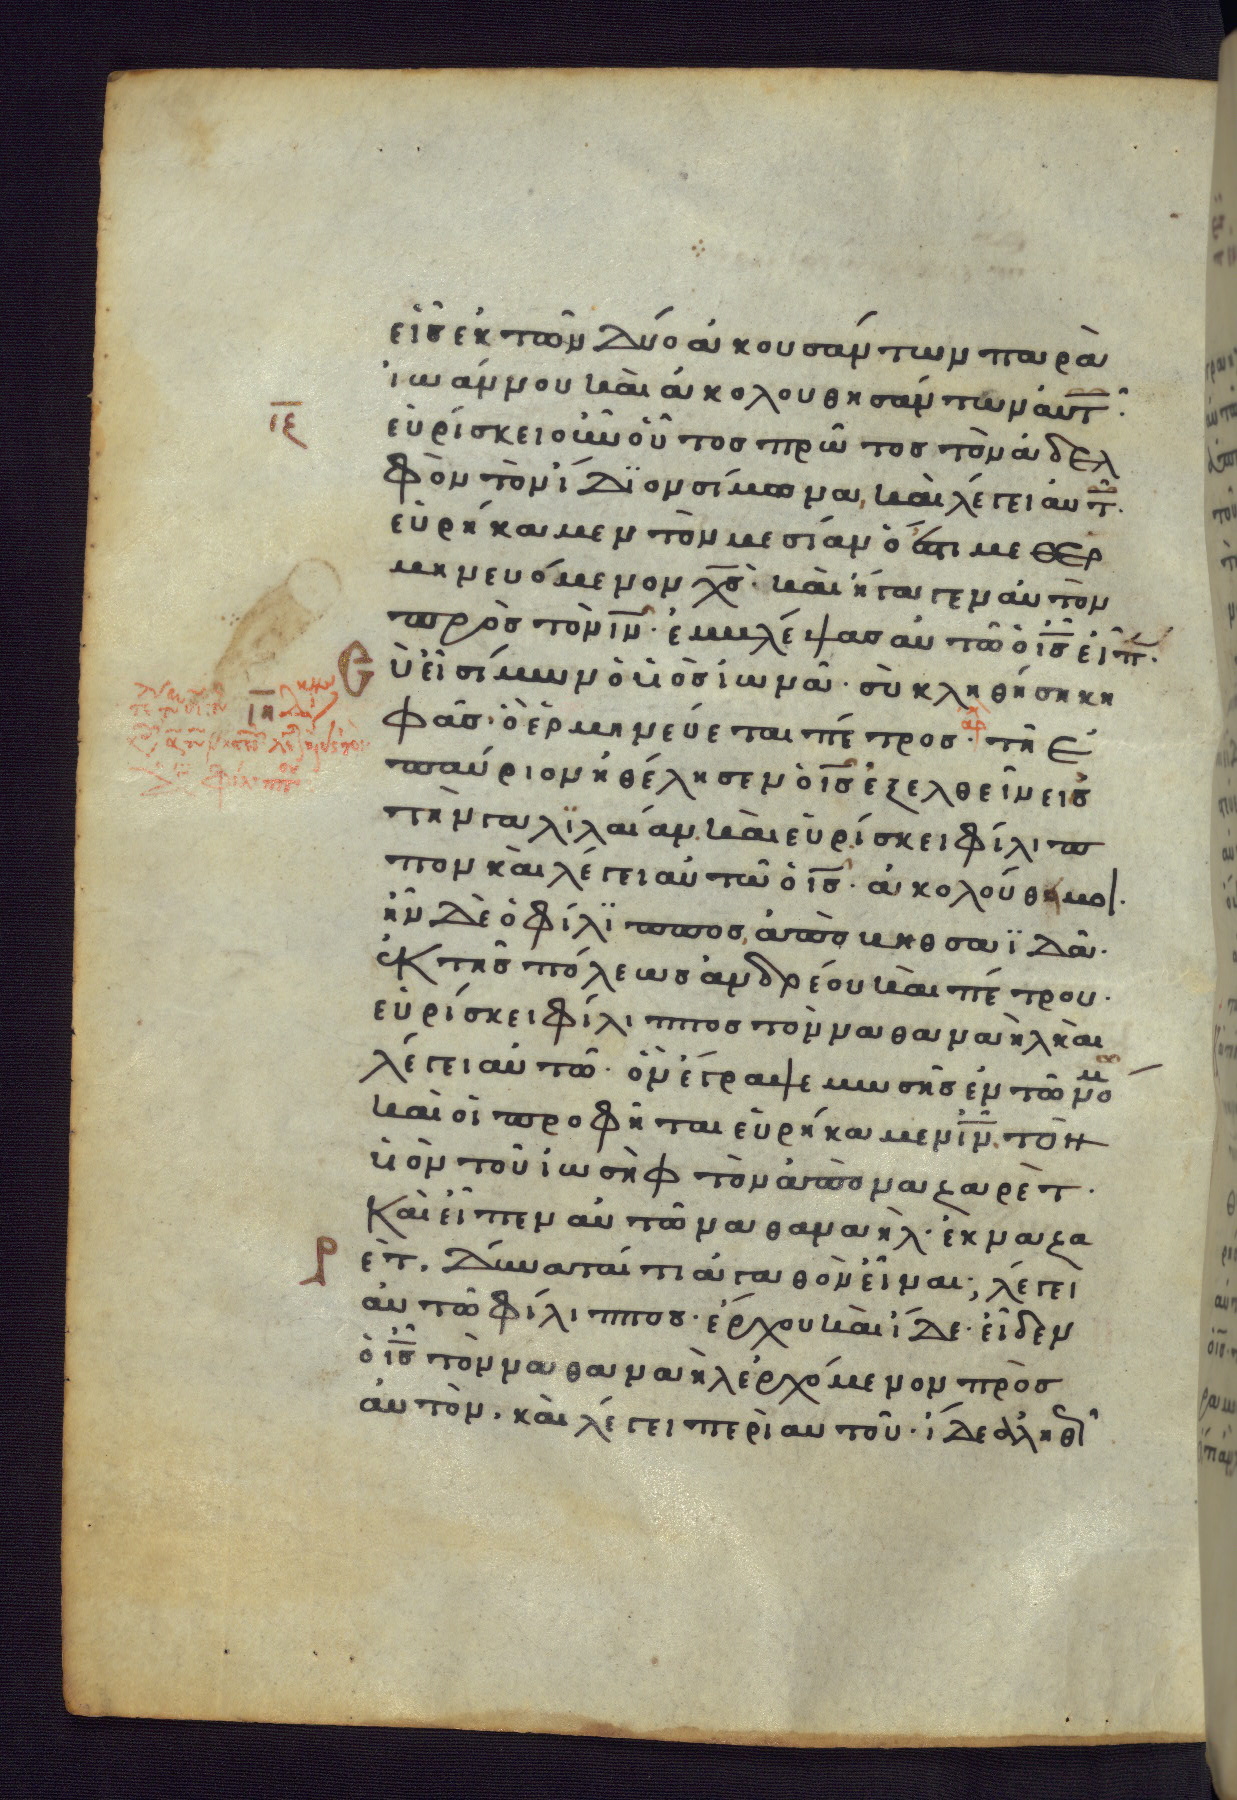 εἷσ ἐκ τῶν δύο ἀκουσάντων παρὰ
ἰωάννου καὶ ἀκολουθησάντων ἀυτ̅ῶ.
ιε
εὑρίσκει οὖν οὗτοσ πρῶτοσ τὸν ἀδελ
φὸν τὸν ἴδϊον σίμωνα, καὶ λέγει ἀυτ̅ῶ.
εὑρήκαμεν τὸν μεσίαν ὅ ἐστι μεθερ
μηνευόμενον χ̅σ̅. καὶ ἤγαγεν ἀυτὸν
πρὸσ τὸν ι̅ν̅. ἐμβλέψασ αὐτῶ ὁ ι̅σ̅ εἶπ.
ὺ εἶ σίμων ὁ ὑ̅ὸσ ἰωνᾶ. σὺ κληθήση κη
φᾶσ. ὃ ἑρμηνεύεται πέτροσ. τῆ ἐ
αρ
ιη
παύριον ἠθέλησεν ὁ ι̅σ̅ ἐξελθεῖν εἰσ
τὴν γαλϊλαίαν. καὶ εὑρίσκει φίλιπ
πον καὶ λέγει αὐτῶ ὁ ι̅σ̅. ἀκολούθει μοι.
ἦν δὲ ὁ φίλϊπποσ, ἀπὸ βηθσαϊδᾶ.
ἐκ τῆσ πόλεωσ ἀνδρέου καὶ πέτρου.
εὑρίσκει φίλιπποσ τὸν ναθαναὴλ καὶ
λέγει αὐτῶ. ὃν ἔγραψε μωσῆσ ἐν τῶ νόμω
καὶ οἱ προφῆται εὑρήκαμεν ι̅ν̅. τὸν
ὑ̅ὸν τοῦ ἰωσὴφ τὸν ἀπὸ ναζαρὲτ.
Καὶ εἶπεν αὐτῶ ναθαναὴλ. ἐκ ναζα
ρ ὲτ, δύναταί τι ἀγαθὸν εἶναι; λέγει
αὐτῶ φίλιπποσ. ἔρχου καὶ ἴδε. εἶδεν
ὁ ι̅σ̅ τὸν ναθαναὴλ ἐρχόμενον πρὸσ
ἀυτὸν. καὶ λέγει περὶ αυτοῦ. ἴδε ἀληθῶ